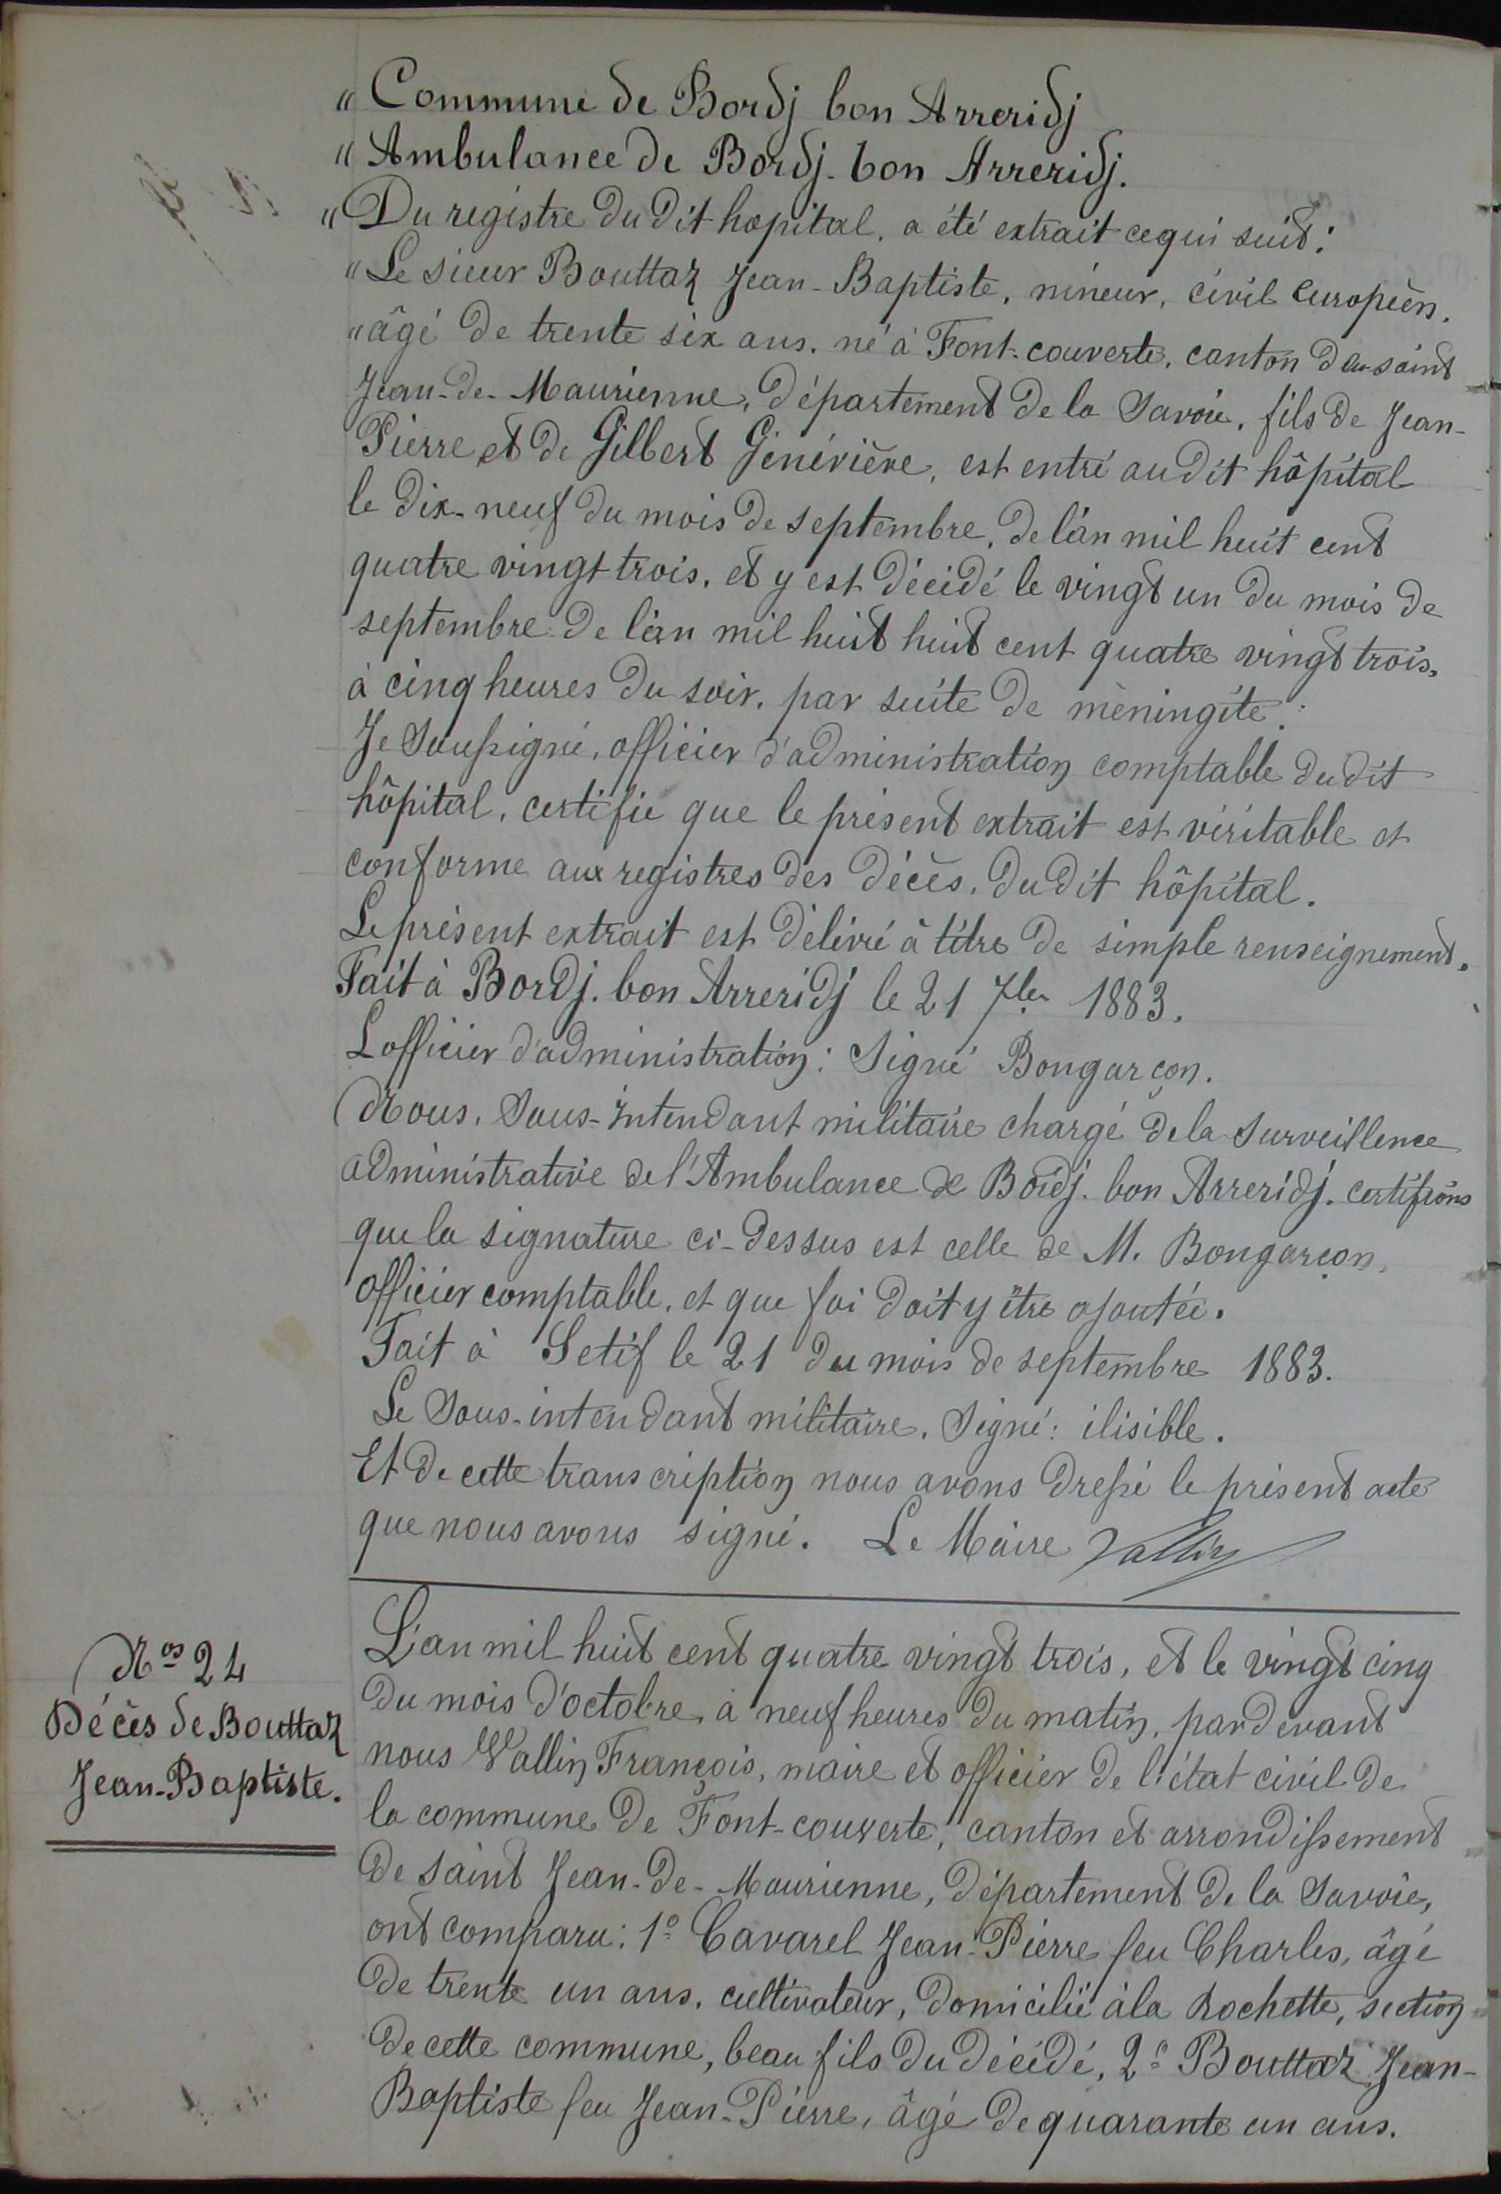 " Commune de Bordj bon Arreridj
" Ambulance de Bordj-bon Arreridj.
" Du registre du dit hopital, a été extrait cequi suit:
" Le sieur Bouttaz Jean-Baptiste, mineur, civil européen.
" âgé de trente six ans. né à Font-couverte, canton de saint
Jean-de-Maurienne, département de la Savoie, fils de Jean-
Pierre et de Gilbert Génévière, est entré au dit hôpital
le dix-neuf du mois de septembre, de l'an mil huit cent
quatre vingt trois, et y est décédé le vingt un du mois de
septembre de l'an mil huit huit cent quatre vingt trois,
à cinq heures du soir, par suite de méningite.
Je soussigné, officier d'administration comptable du dit
hôpital, certifie que le présent extrait est véritable et
conforme aux registres des décès, du dit hôpital.
Le présent extrait est délivré à titre de simple renseignement.
Fait à Bordj. bon Arreridj le 21 7bre 1883.
L'officier d'administration: Signé Bongarçon.
Nous, Sous-Intendant militaire chargé de la surveillence
administrative de l'Ambulance de Bordj. bon Arreridj. certifions
que la signature ci-dessus est celle de M. Bongarçon,
officier comptable, et que foi doit y être ajoutée.
Fait à Setif le 21 du mois de septembre 1883.
Le Sous-intendant militaire, Signé: ilisible.
Et de cette transcription nous avons dressé le présent acte
que nous avons signé. Le Maire Vallin
Nos 24
Décès de Bouttaz
Jean-Baptiste.
L'an mil huit cent quatre vingt trois, et le vingt cinq
du mois d'octobre, à neuf heures du matin, pardevant
nous Vallin François, maire et officier de l'état civil de
la commune de Font-couverte, canton et arrondissement
de saint Jean-de-Maurienne, département de la Savoie,
ont comparu: 1º Cavarel Jean-Pierre feu Charles, âgé
de trente un ans, cultivateur, domicilié à la Rochette, section
de cette commune, beau fils du décédé, 2º Bouttaz Jean-
Baptiste feu Jean-Pierre, âgé de quarante un ans.